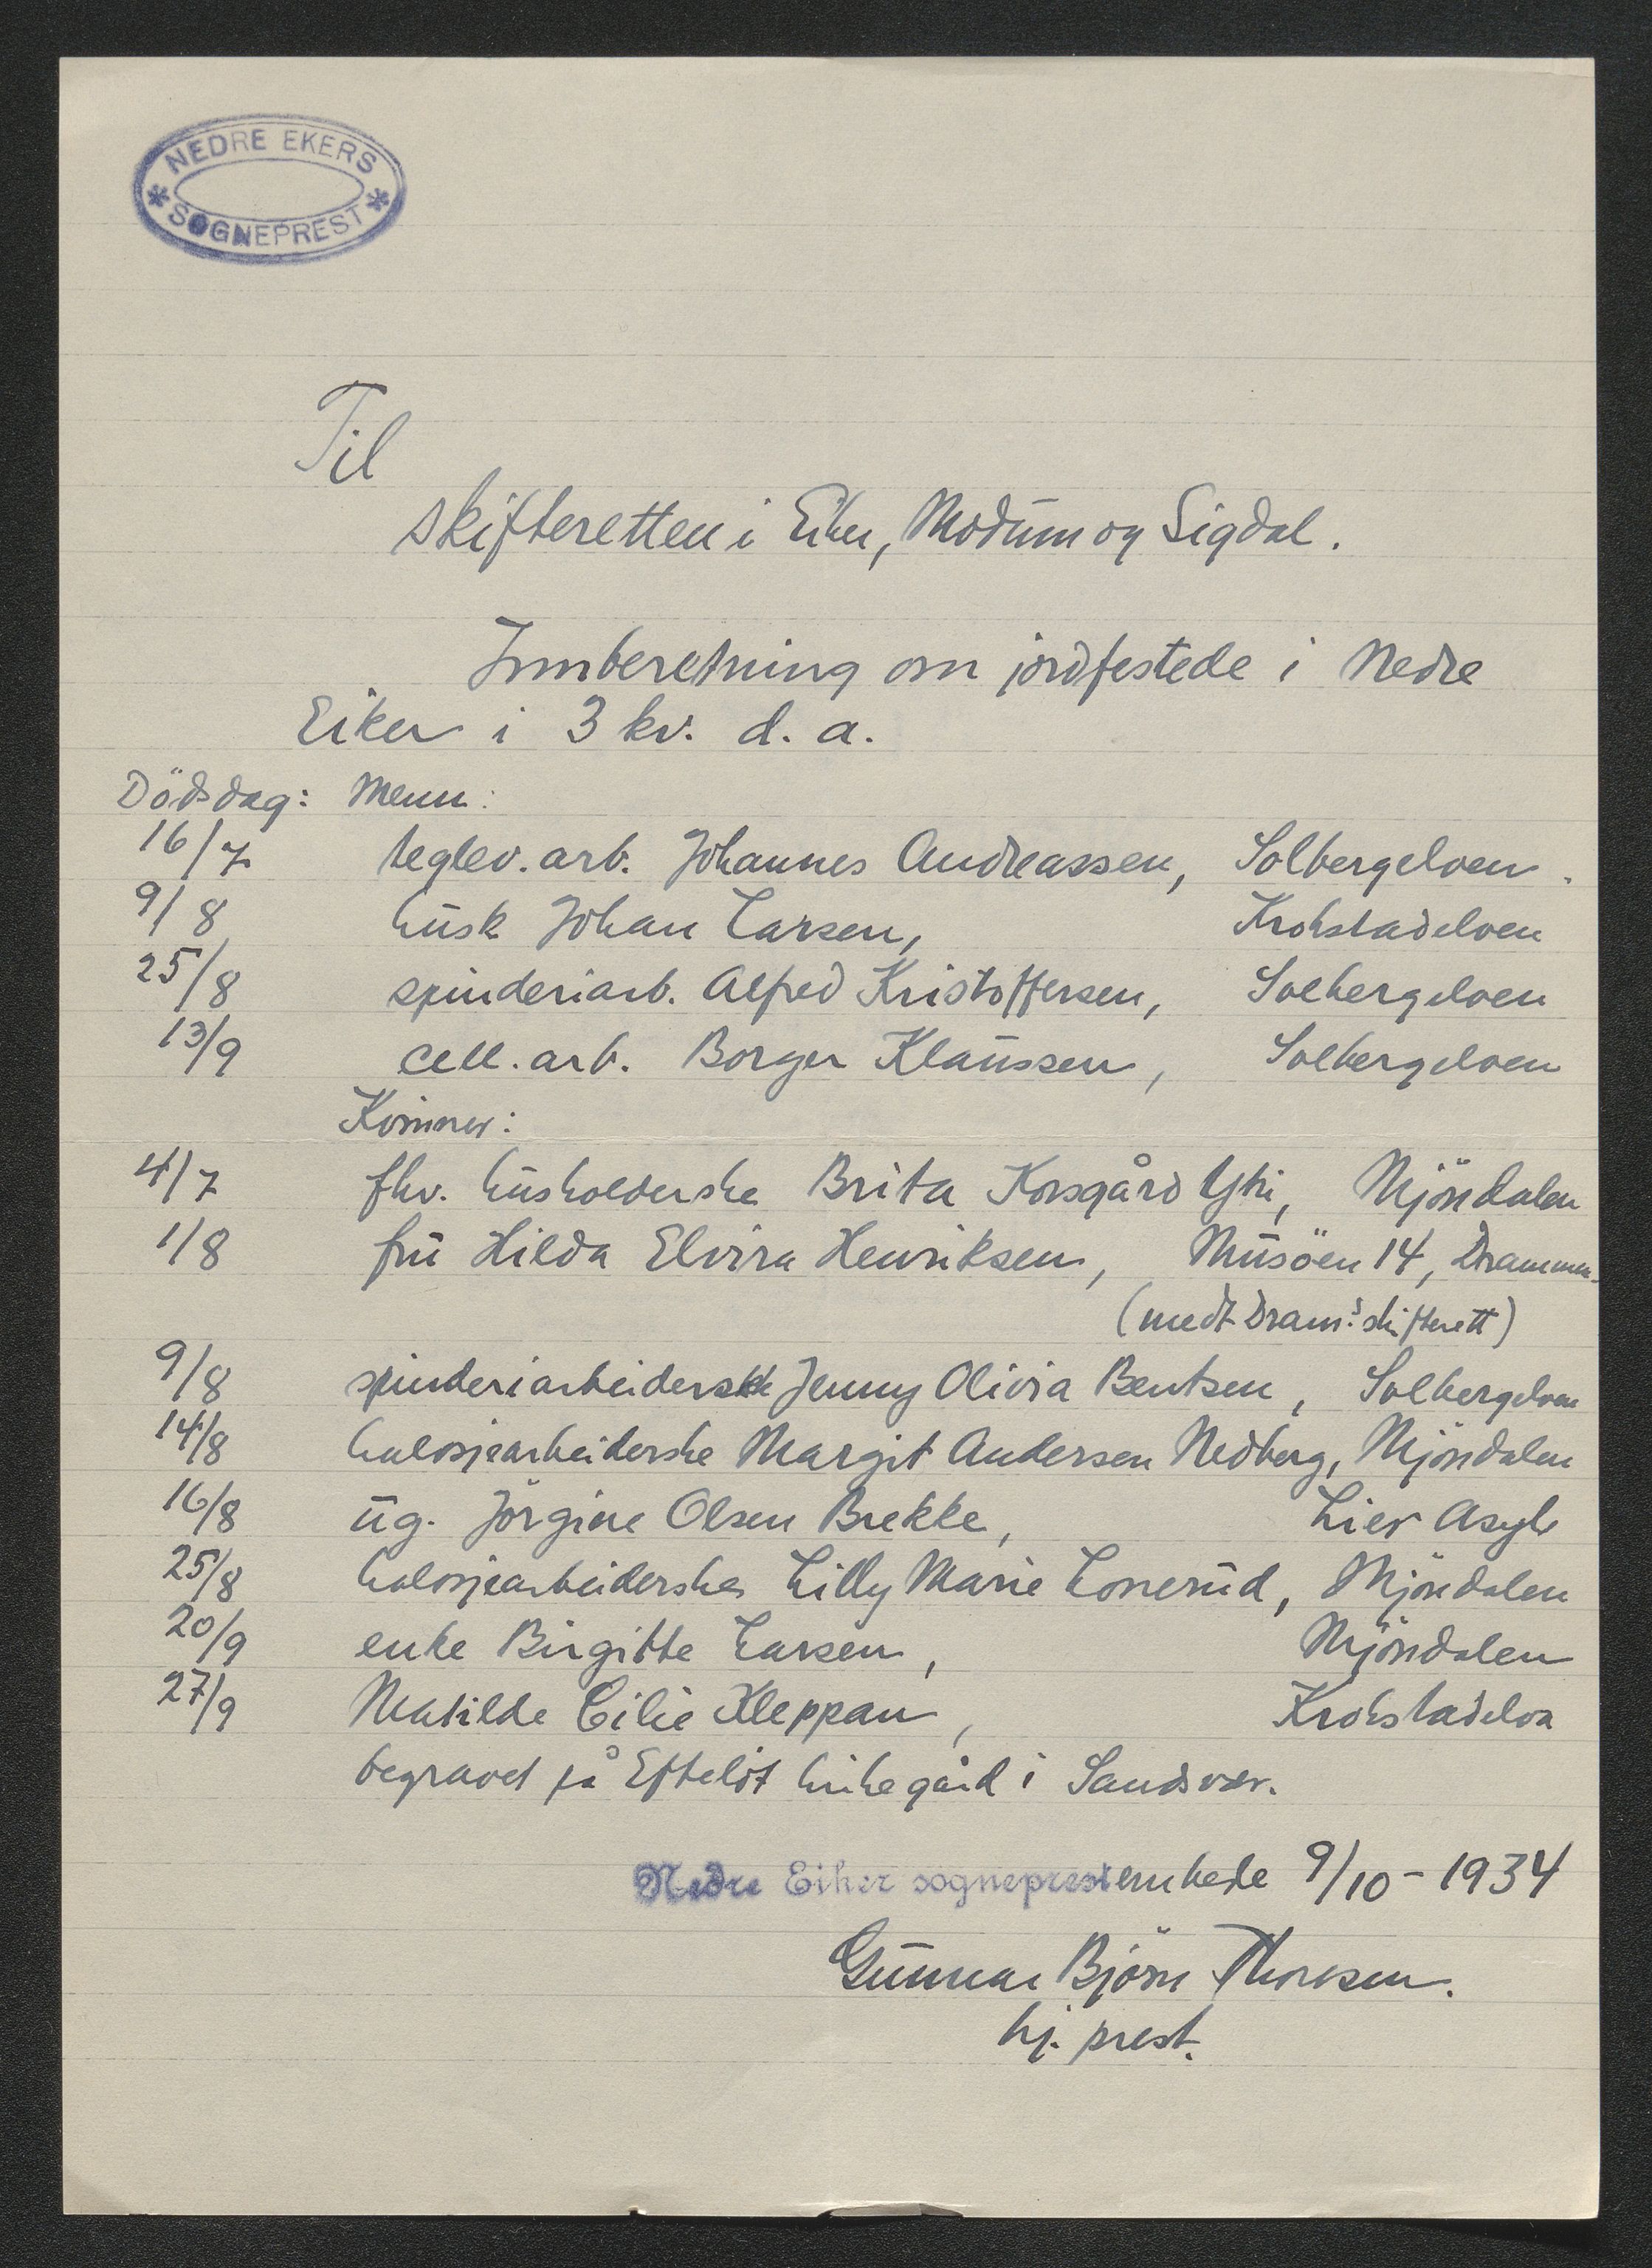 NEDRE EKERS
SOGNEPREST
Til
skifteretten i Eiker, Modum og Sigdal.
Innberetning om jordfestede i Nedre
Eiker i 3 kv. d. a.
Dödsdag: Menn:
16/7 teglv. arb. Johannes Andreassen, Solbergelven.
9/8 husk Johan Larsen, Krokstadelven
25/8 spinderiarb. Alfred Kristoffersen, Solbergelven
13/9 cell. arb. Borger Klaussen, Solbergelven
Kvinner:
4/7 fhv. husholderske Brita Korsgård Ytri, Mjöndalen
1/8 fru Hilda Elvira Henriksen, Musöen 14, Drammen.
(medt Dram.s skifterett)
9/8 spinderiarbeiderske Jenny Olivia Bentsen, Solbergelven
14/8 kalosjearbeiderske Margit Andersen Nedberg, Mjöndalen
16/8 ug. Jörgine Olsen Brekke, Lier Asyl
25/8 kalosjearbeiderske Lilly Marie Lonerud, Mjöndalen
20/9 enke Birgitte Larsen, Mjöndalen
27/9 Matilde Cilie Kleppan, Krokstadelva
begravet på Eftelöt kirkegård i Sandsvær.
Nedre Eiker sogneprestembede 9/10 - 1934
Gunnar Björn Thoresen.
hj. prest.